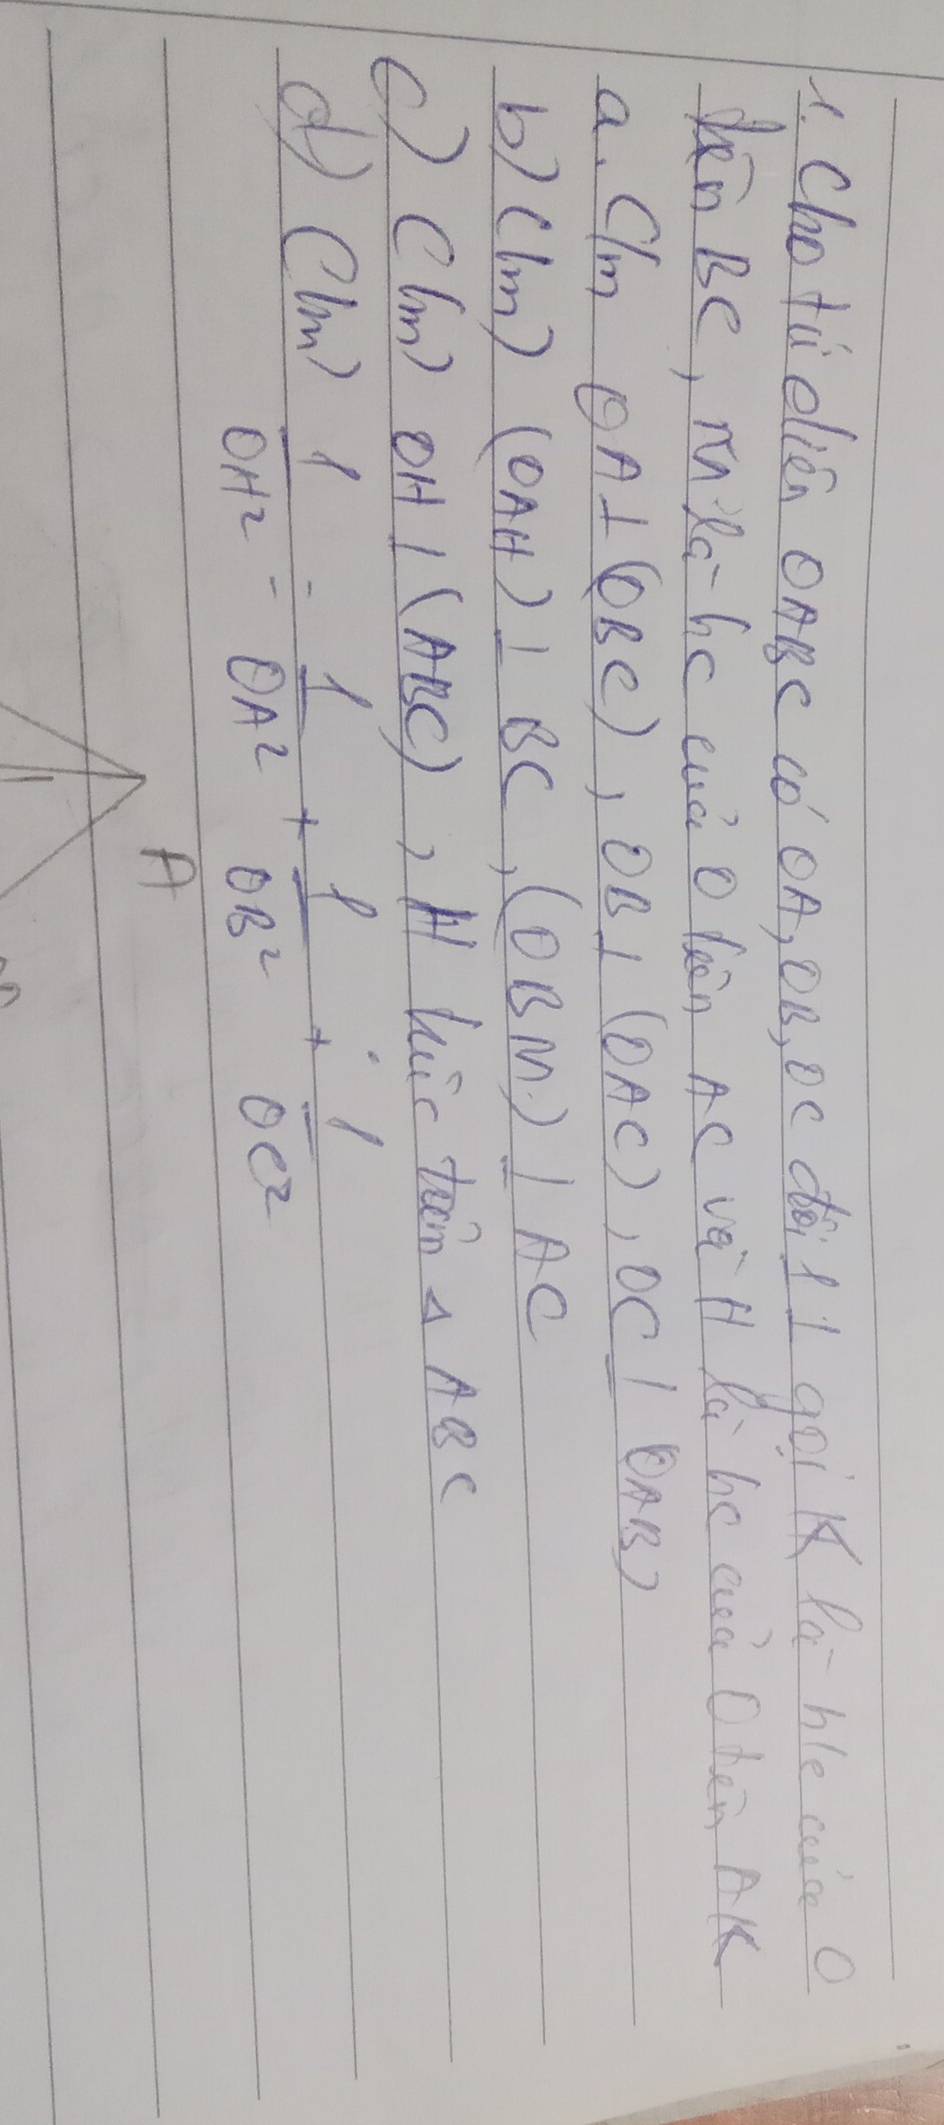 1. Cho tứ diện OABC có OA, OB, OC đôi 1 ⊥ gọi K là h/c của O
trên BC, M là hc của O trên AC và H là hc của O trên AK
a. C/m OA ⊥ (OBC), OB ⊥ (OAC), OC ⊥ OAB)
b) C/m) (OAH) ⊥ BC, (OBM) ⊥ AC
c) C/m) OH ⊥ (ABC), H trực tâm Δ ABC
d) C/m) 1/OH² = 1/OA² + 1/OB² + 1/OC²
A